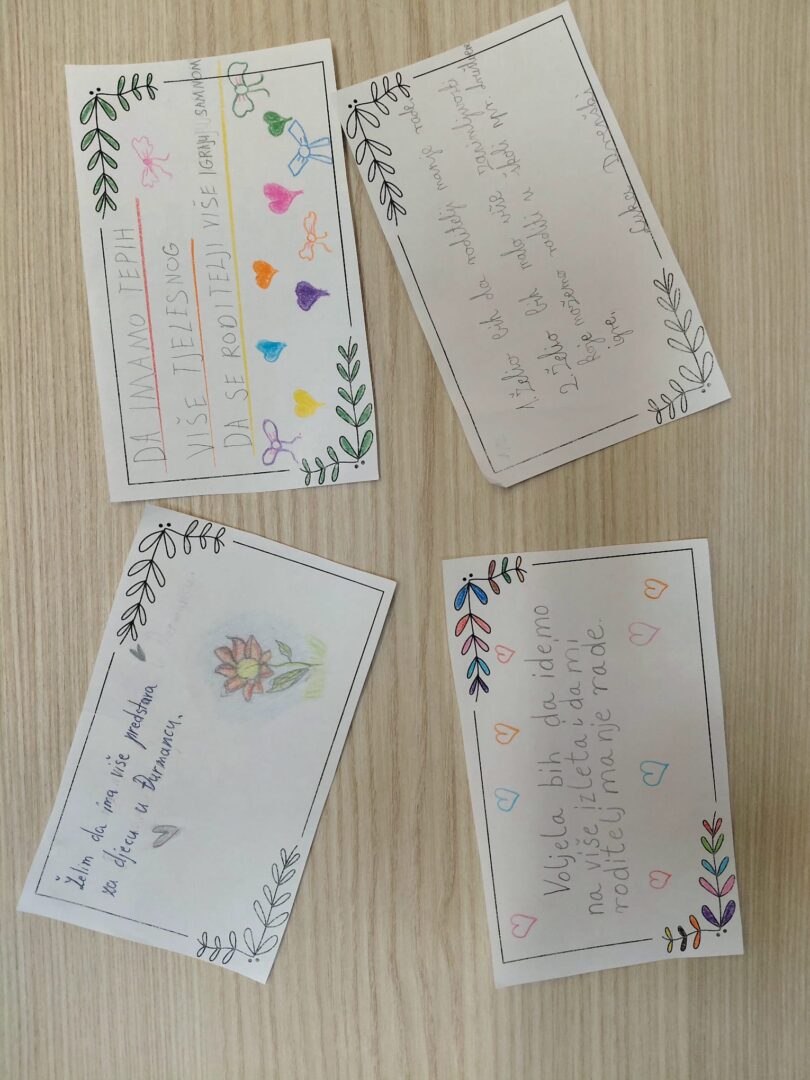 DA IMAMO TEPIH
VIŠE TJELESNOG
DA SE RODITELJI VIŠE IGRAJU SAMNOM
1. Želio bih da roditelji manje rade.
2. Želio bih malo više zanimljivosti
koje možemo raditi u školi npr. društvene
igre.
Želim da ima više predstava
za djecu u Đurmancu.
Voljela bih da idemo
na više izleta i da mi
roditelj manje rade.